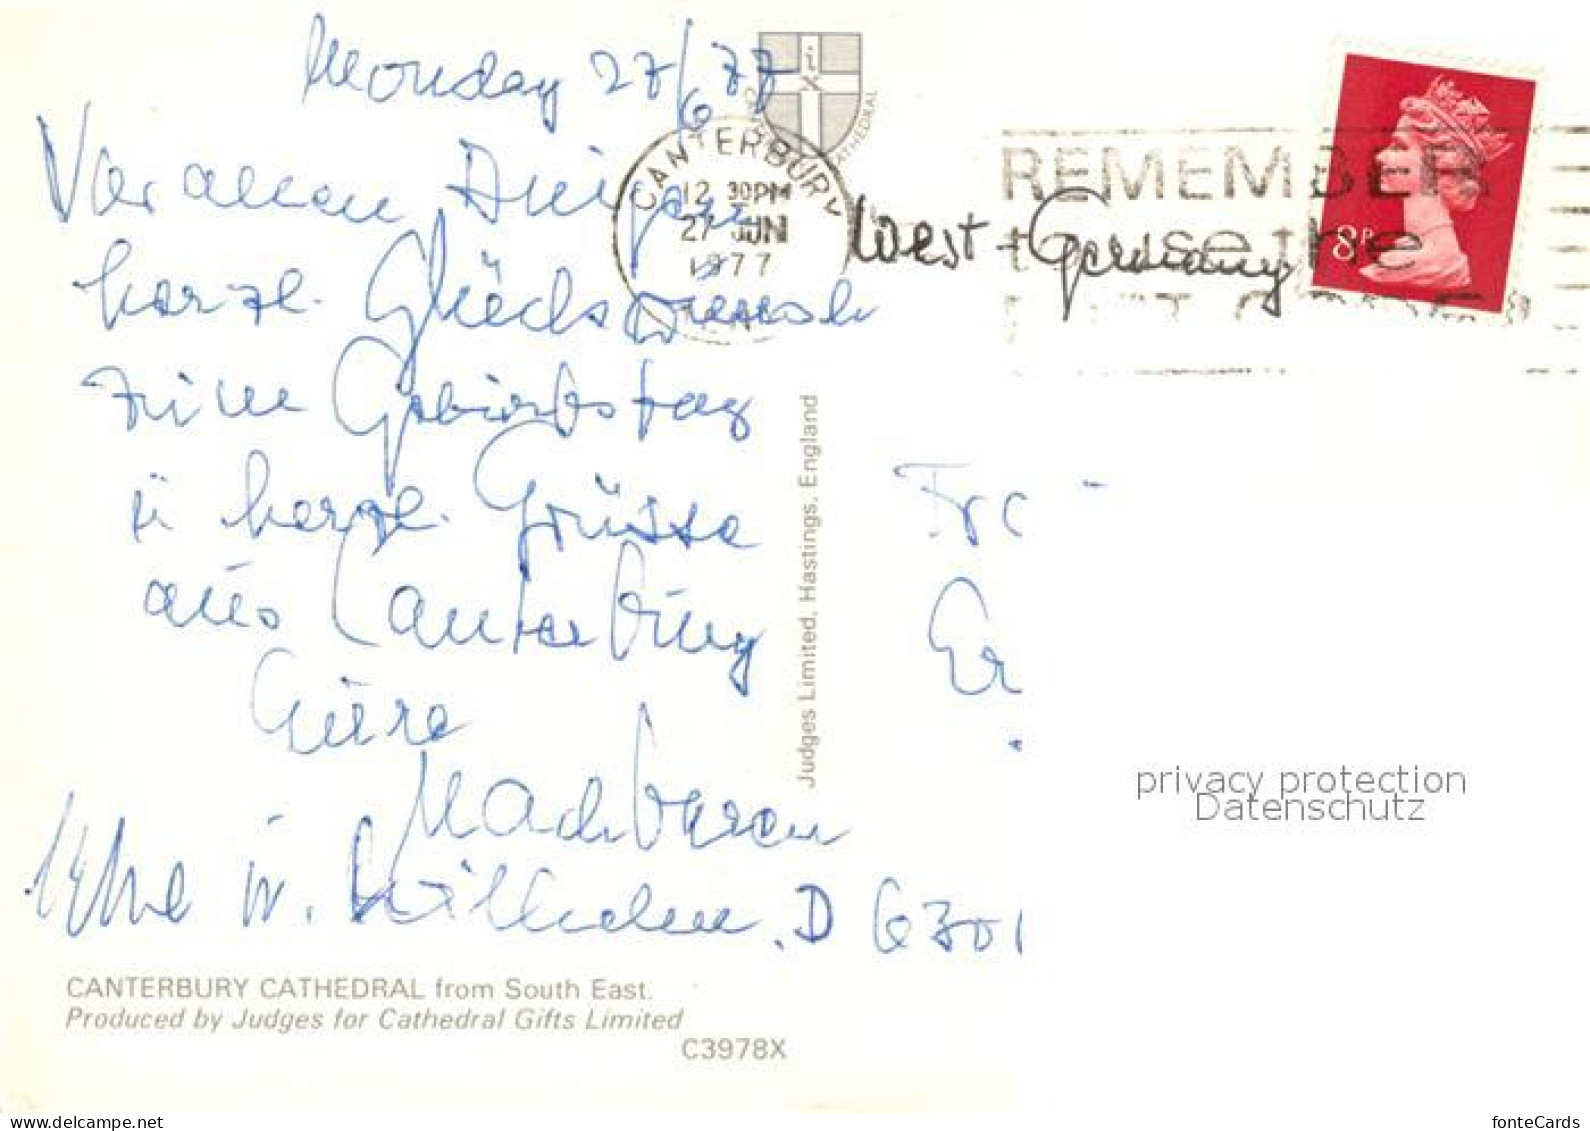 Monday 27/6 77
Vor allen Dingen
herzl. Glückwunsch
zum Geburtstag
u herzl. Grüsse
aus Canterbury
Eure
Nachbaren
u. Wilhelm.
CANTERBURY
12 30PM
27 JUN
1977
CATHEDRAL
REMEMBER
to use the
8P
West-Germany
Judges Limited, Hastings, England
D 6301
privacy protection
Datenschutz
CANTERBURY CATHEDRAL from South East.
Produced by Judges for Cathedral Gifts Limited
C3978X
www.delcampe.net
fonteCards